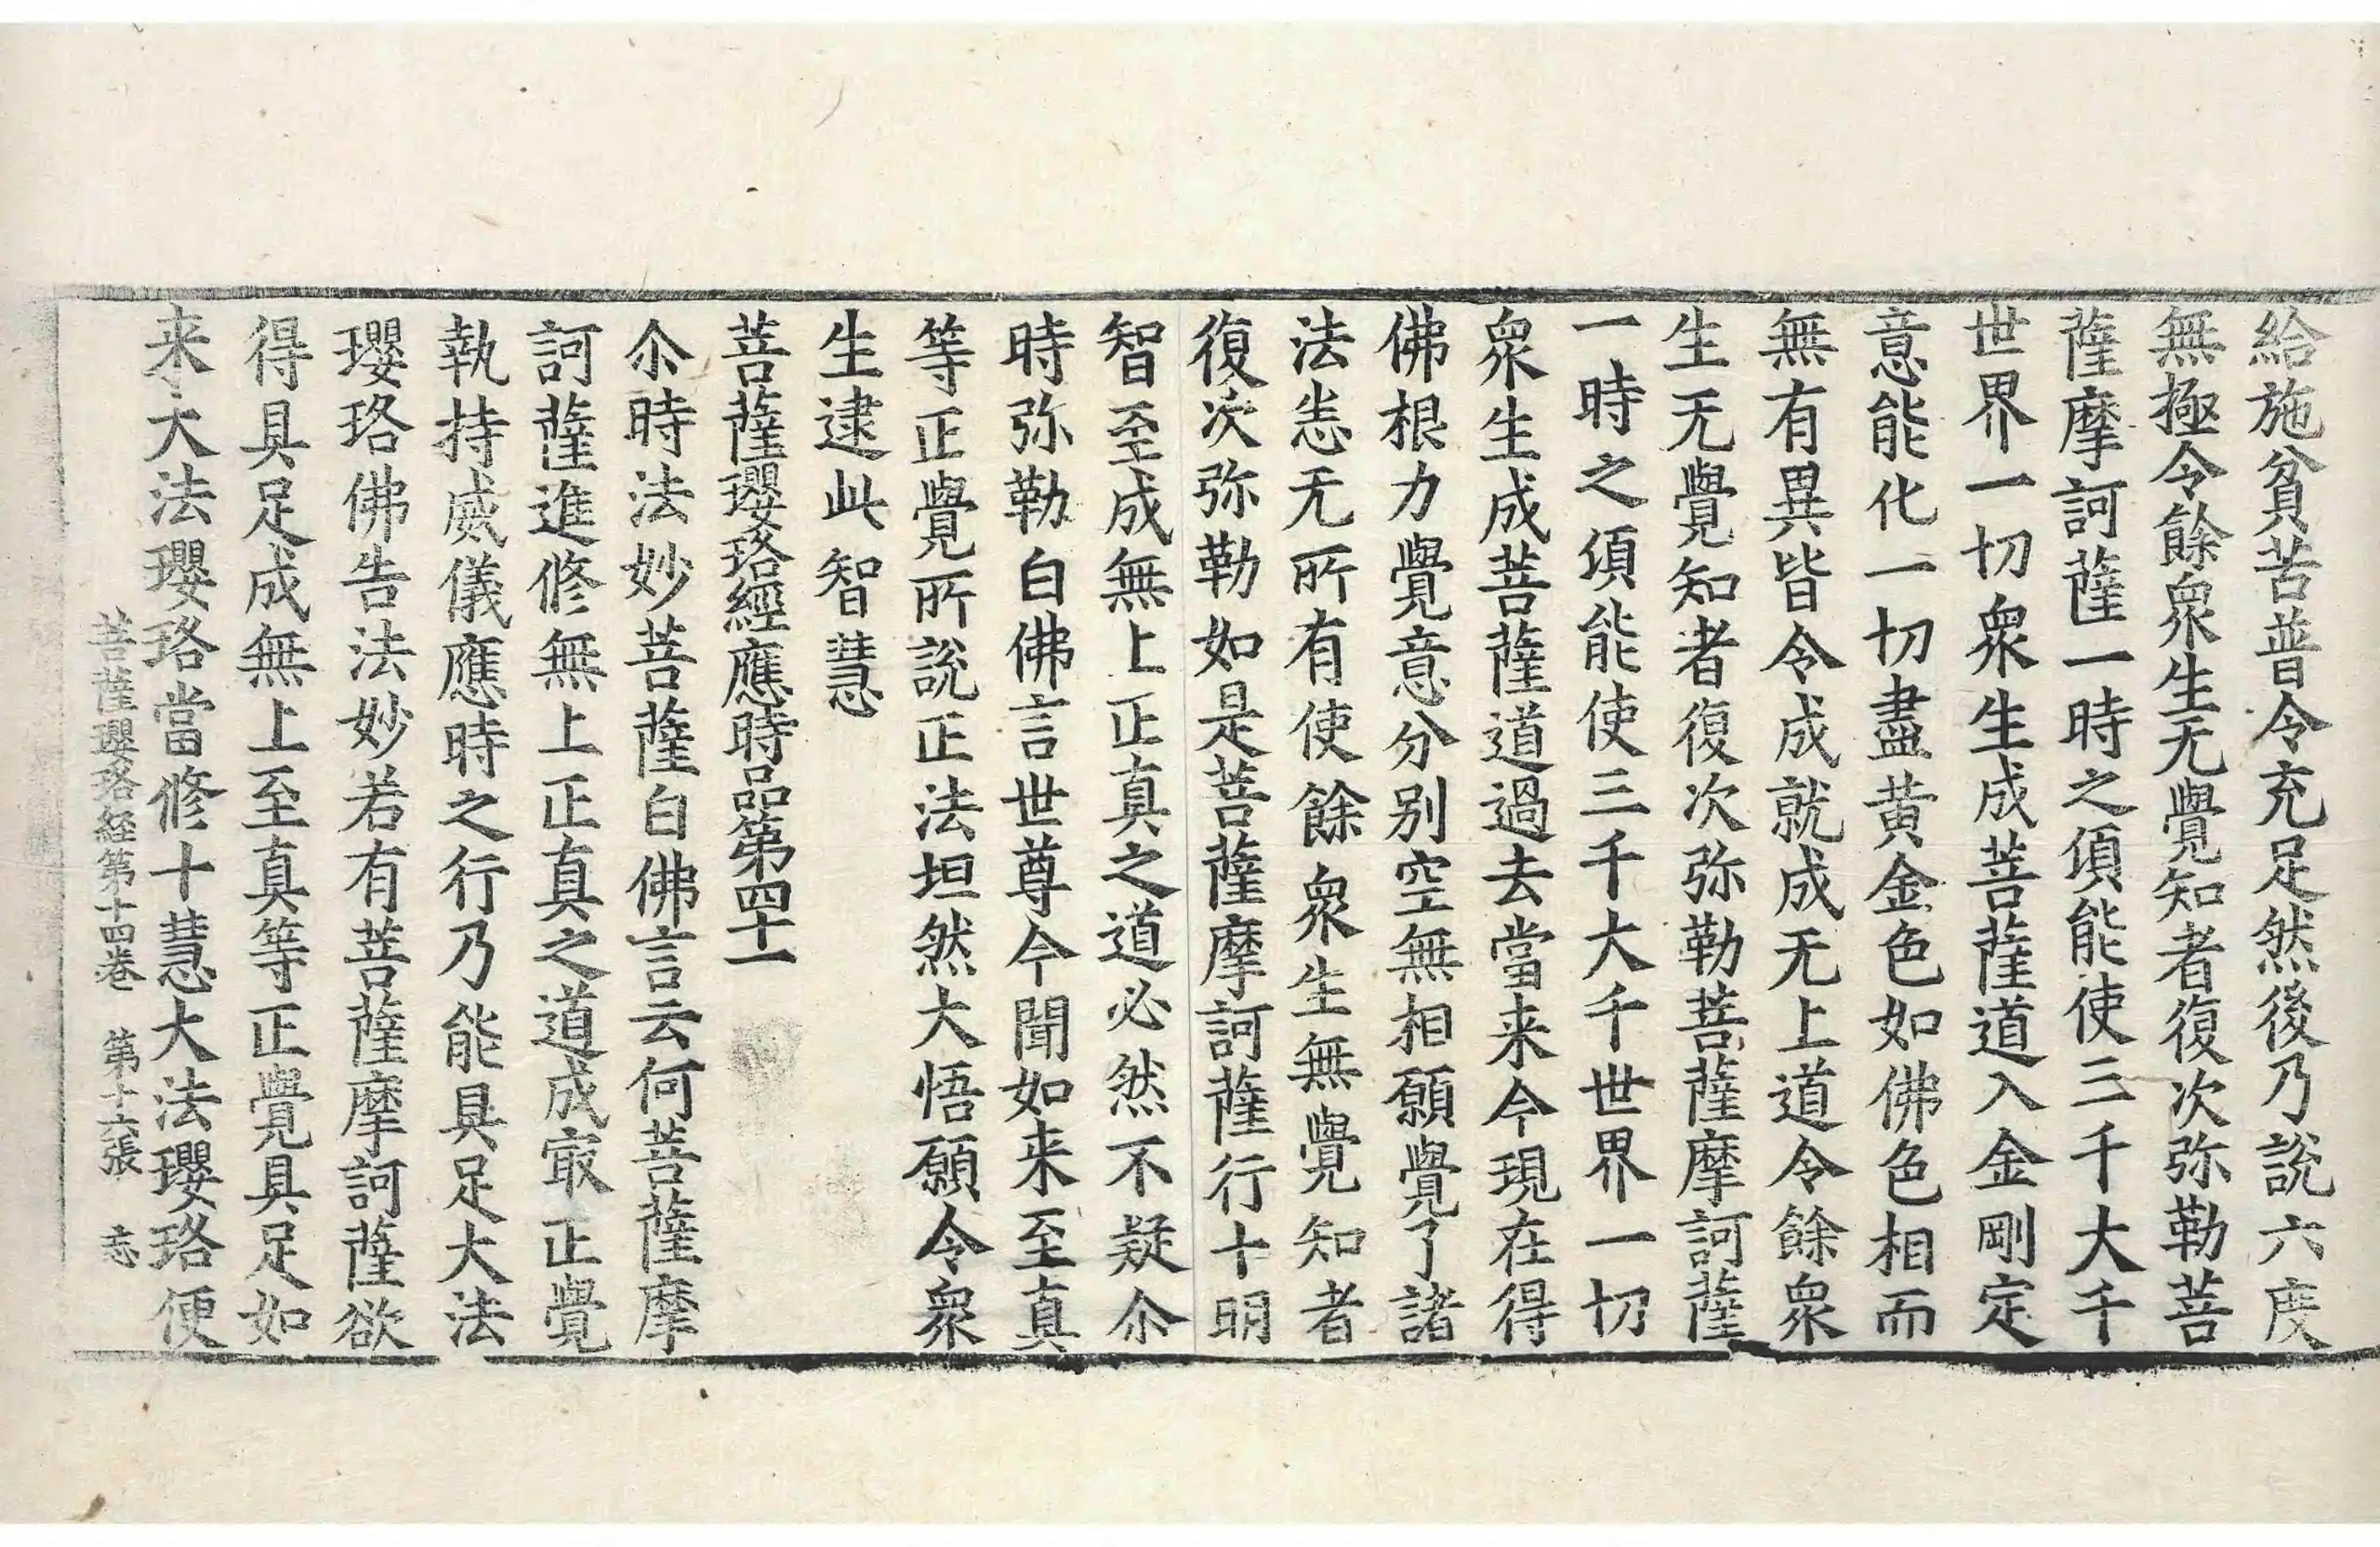 給施貧苦普令充足然後乃說六度
無極令餘衆生无覺知者復次弥勒菩
薩摩訶薩一時之頃能使三千大千
世界一切衆生成菩薩道入金剛定
意能化一切盡黄金色如佛色相而
無有異皆令成就成无上道令餘衆
生无覺知者復次弥勒菩薩摩訶薩
一時之須能使三千大千世界一切
衆生成菩薩道過去當来今現在得
佛根力覺意分别空無相願覺了諸
法恙无所有使餘衆生無覺知者
復次弥勒如是菩薩摩訶薩行十明
智至成無上正真之道必然不疑尒
時弥勒白佛言世尊今聞如来至真
等正覺所說正法坦然大悟願令衆
生逮此智慧
菩薩瓔珞經應時品第四十一
尒時法妙菩薩白佛言云何菩薩摩
訶薩進修無上正真之道成㝡正覺
執持威儀應時之行乃能具足大法
瓔珞佛告法妙若有菩薩摩訶薩欲
得具足成無上至真等正覺具足如
来大法瓔珞當修十慧大法瓔珞便
菩薩瓔珞経第十四卷 第十六張 志